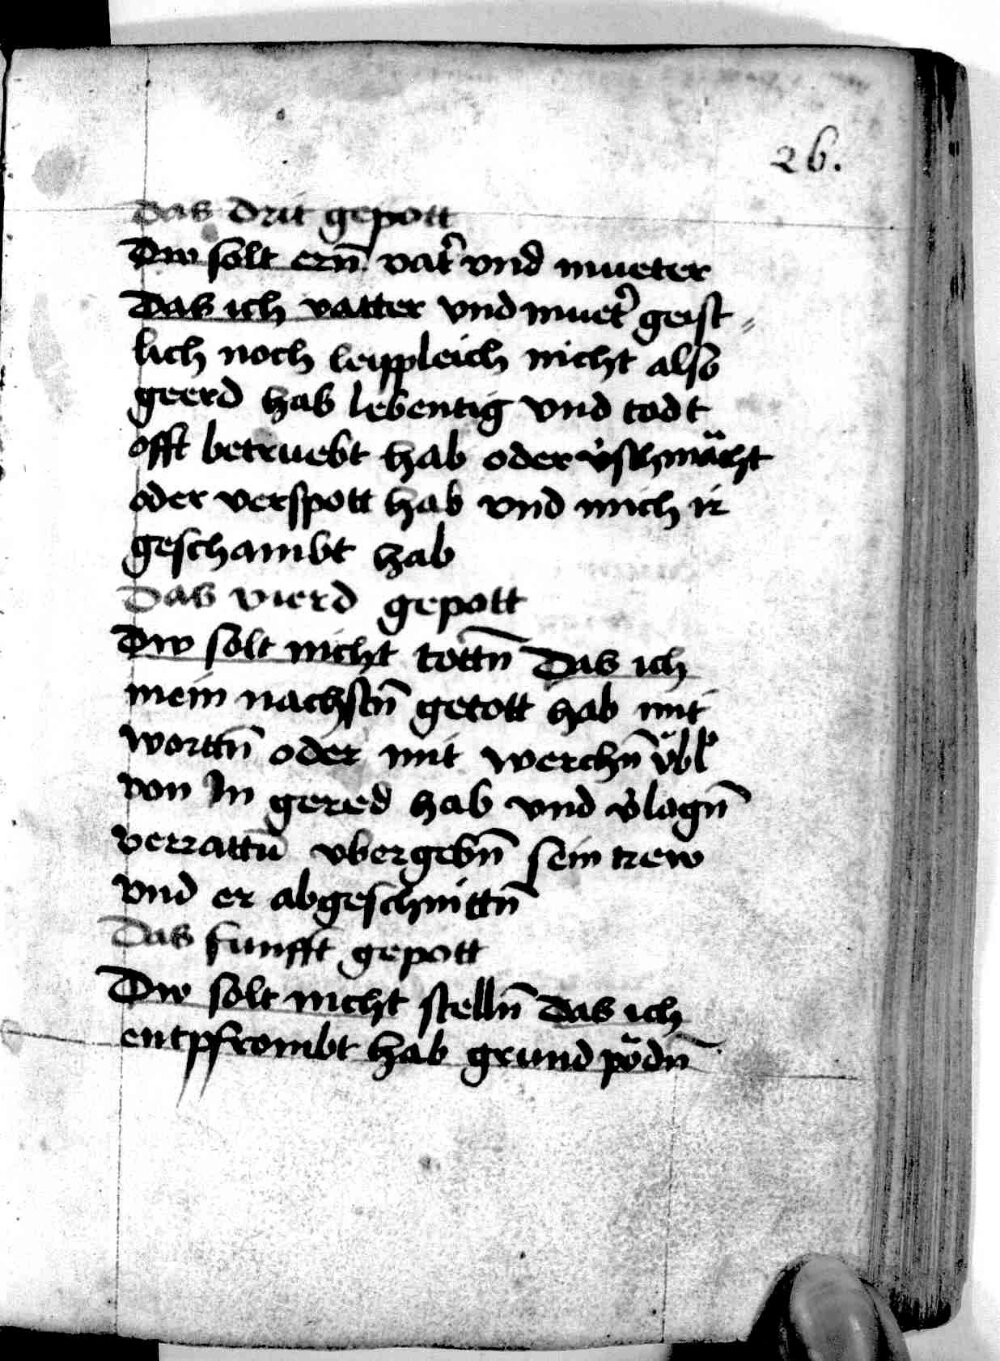 26.
Das drit gepott
Dw solt ern̄ vat̄r vnd mueter
Das ich vatter vnd muet̄r geist⸗
lich noch leippleich nicht also
geerd hab lebentig vnd todt
offt betruebt hab oder v̓schmächt
oder verspott hab vnd mich ir
geschambt hab
Das vierd gepott
Dw solt nicht tottn̄ Das ich
mein nachstn̄ getott hab mit
worttn̄ oder mit werchn̄ vbl
von In gered hab vnd v̓logn̄
verrattn̄ vbergebn̄ sein trew
vnd er abgeschnittn̄
Das funfft gepott
Dw solt nicht stelln̄ das ich
entpfrombt hab grund pödn̄